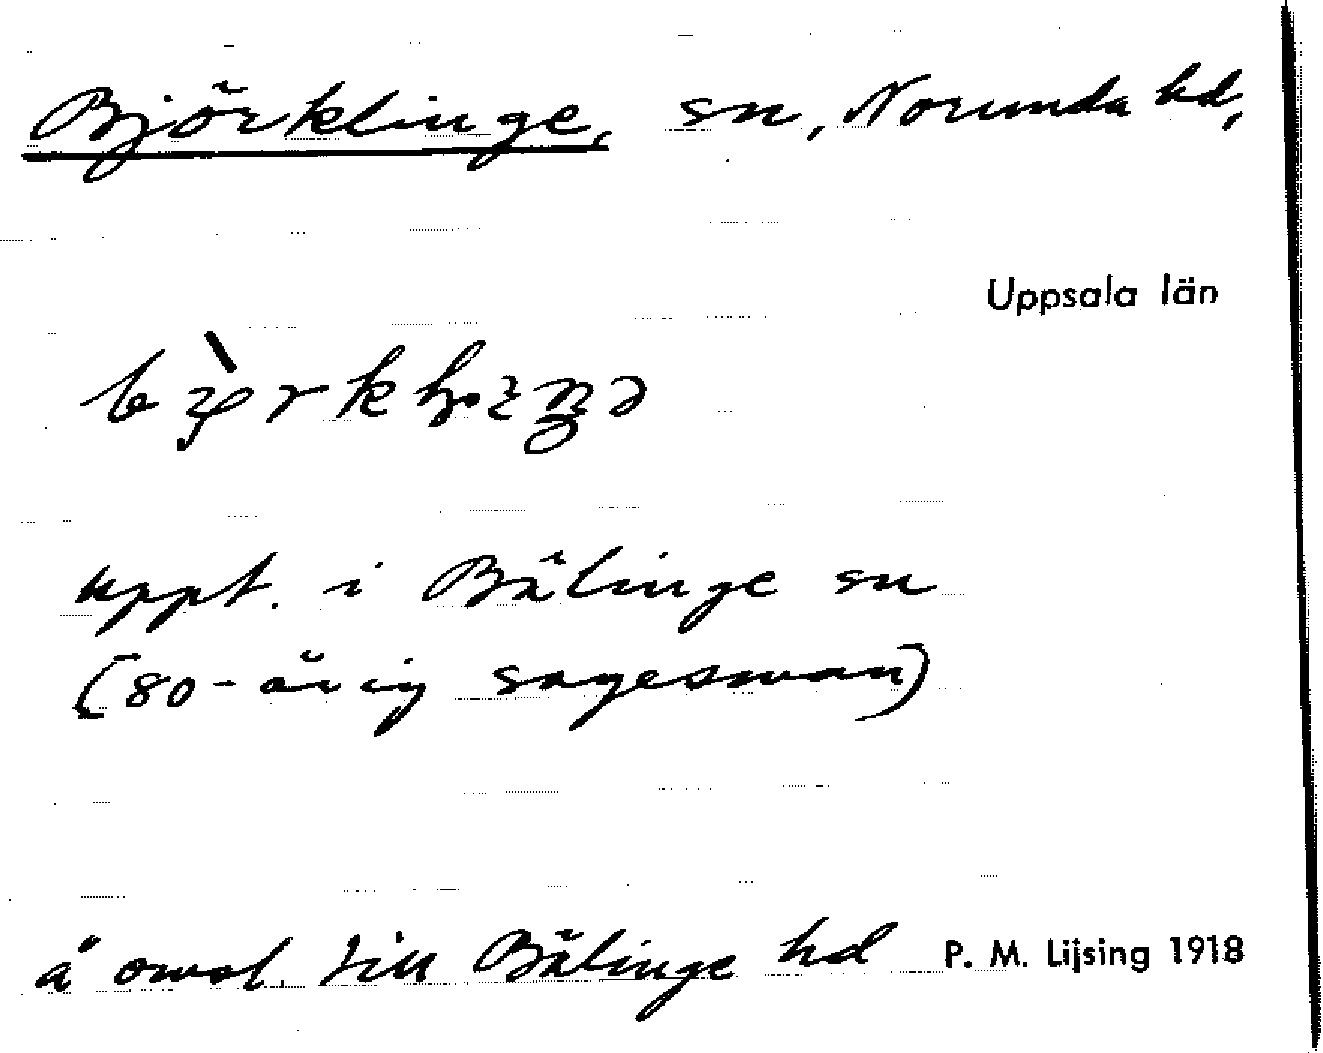 Björklinge, sn, Norunda hd,
Uppsala län
uppt. i Bälinge sn
(80-årig sagesman)
å omsl. till Bälinge hd P. M. Lijsing 1918